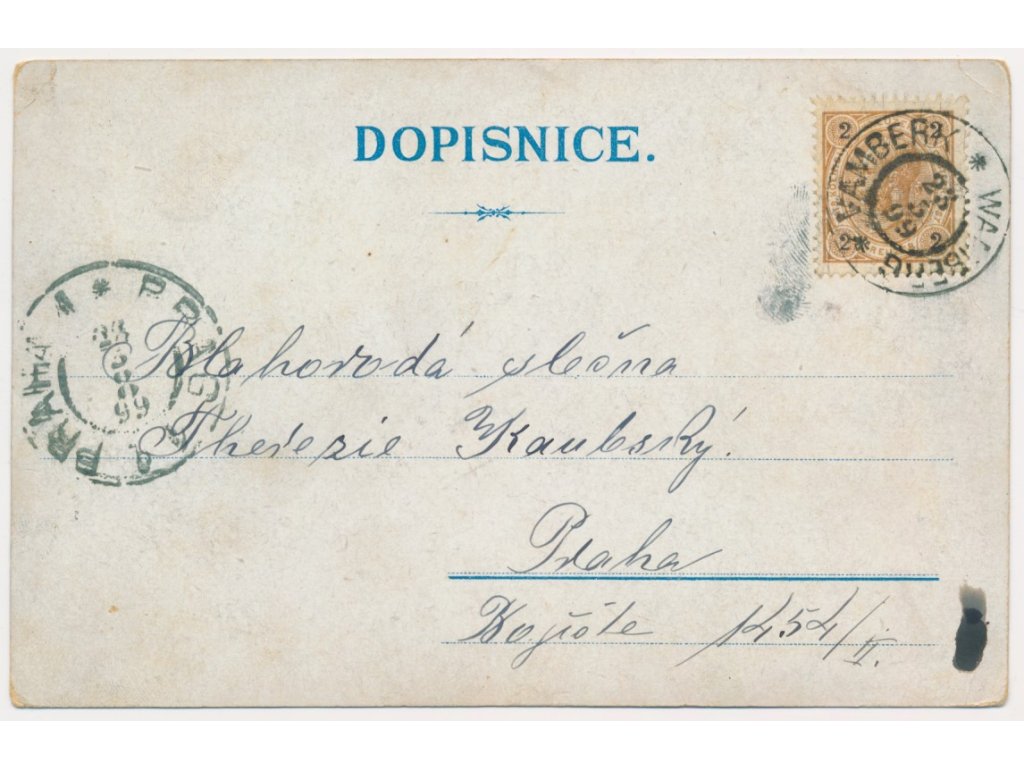 DOPISNICE.
2 2
2 2
VAMBERK * WAMBERG *
23 99
PRAHA 1 * PRAG 1
23 99
Blahorodá slečna
Theřezie Kaubský.
Praha
1454/II.